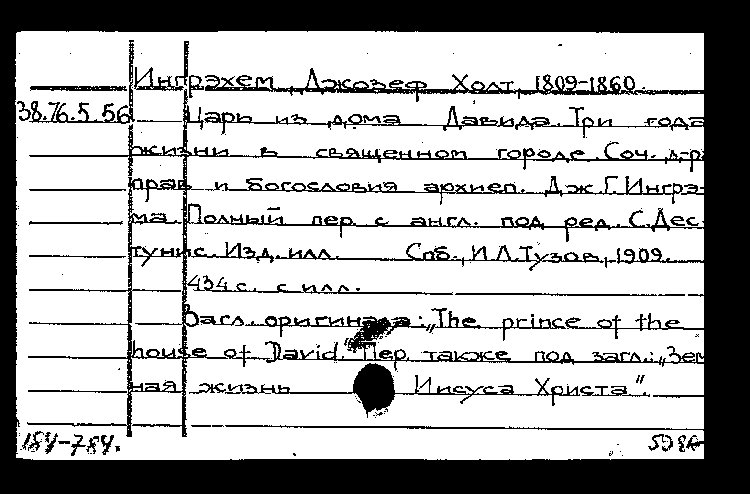 Ингрэхем, Джозеф Холт, 1809-1860.
38.76.5 56 Царь из дома Давида. Три года
жизни в священном городе. Соч. д-ра
прав и богословия архиеп. Дж.Г.Ингрэ-
ма. Полный пер. с англ. под ред. С.Дес-
тунис. Изд. илл. Спб., И.Л.Тузов, 1909.
434 с. с илл.
Загл. оригинала: „The prince of the
house of David." Пер. также под загл.: „Зем
ная жизнь Иисуса Христа".
184-784.